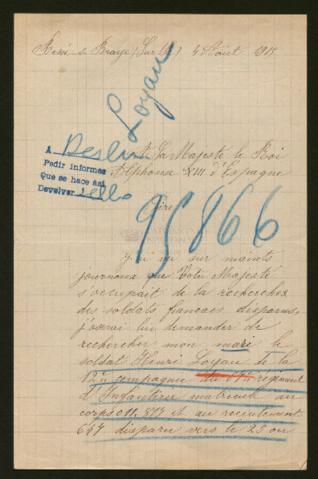 4 Août 1915
Loyau
A Berlin
Pedir informes
Que se hace así
Devolver sello
A Sa Majesté le Roi
Alphonse XIII d'Espagne
Sire
95866
J'ai vu sur maints
journaux que Votre Majesté
s'occupait de la recherche
des soldats français disparus,
j'oserai lui demander de
rechercher mon mari le
soldat Henri Loyau de la
12e compagnie du régiment
d'Infanterie matricule au
corps 011.877 et au recrutement
647 disparu vers le 25 ou